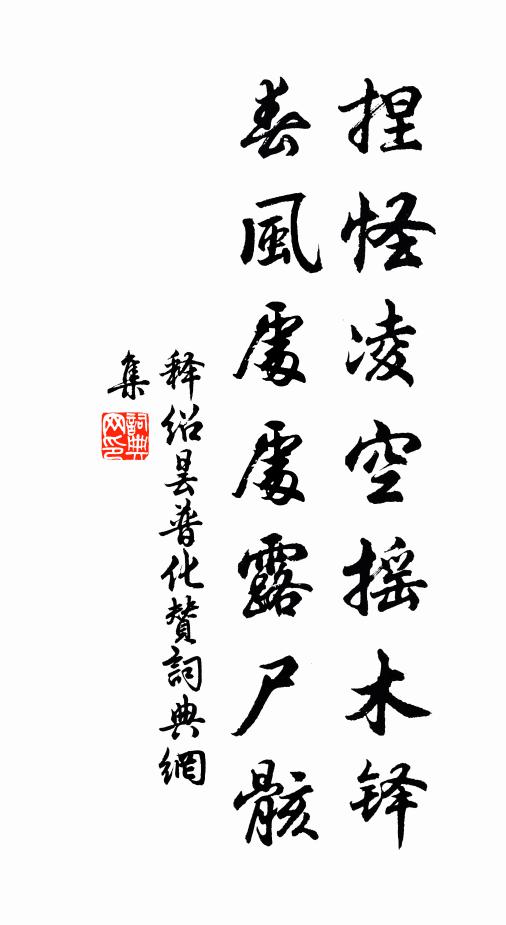 捏怪凌空摇木铎
春風處處露尸骸
释绍昙普化赞詞典網
集
詞典网印